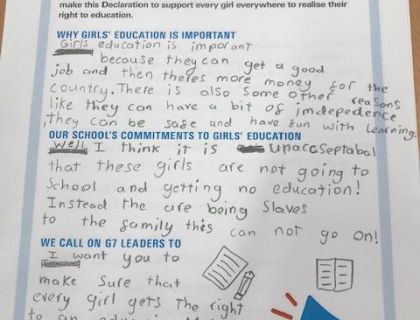 make this Declaration to support every girl everywhere to realise their
right to education.
WHY GIRLS' EDUCATION IS IMPORTANT
Girls education is imporant
because they can get a good
job and then theres more money for the
country. There is also some other reasons
like they can have a bit of imdependence
they can be safe and have fun with learning.
OUR SCHOOL'S COMMITMENTS TO GIRLS' EDUCATION
Well I think it is unaccseptabal
that these girls are not going to
School and getting no education!
Instead the are being Slaves
to the family this can not go on!
WE CALL ON G7 LEADERS TO
I want you to
make Sure that
every girl gets The right
to an